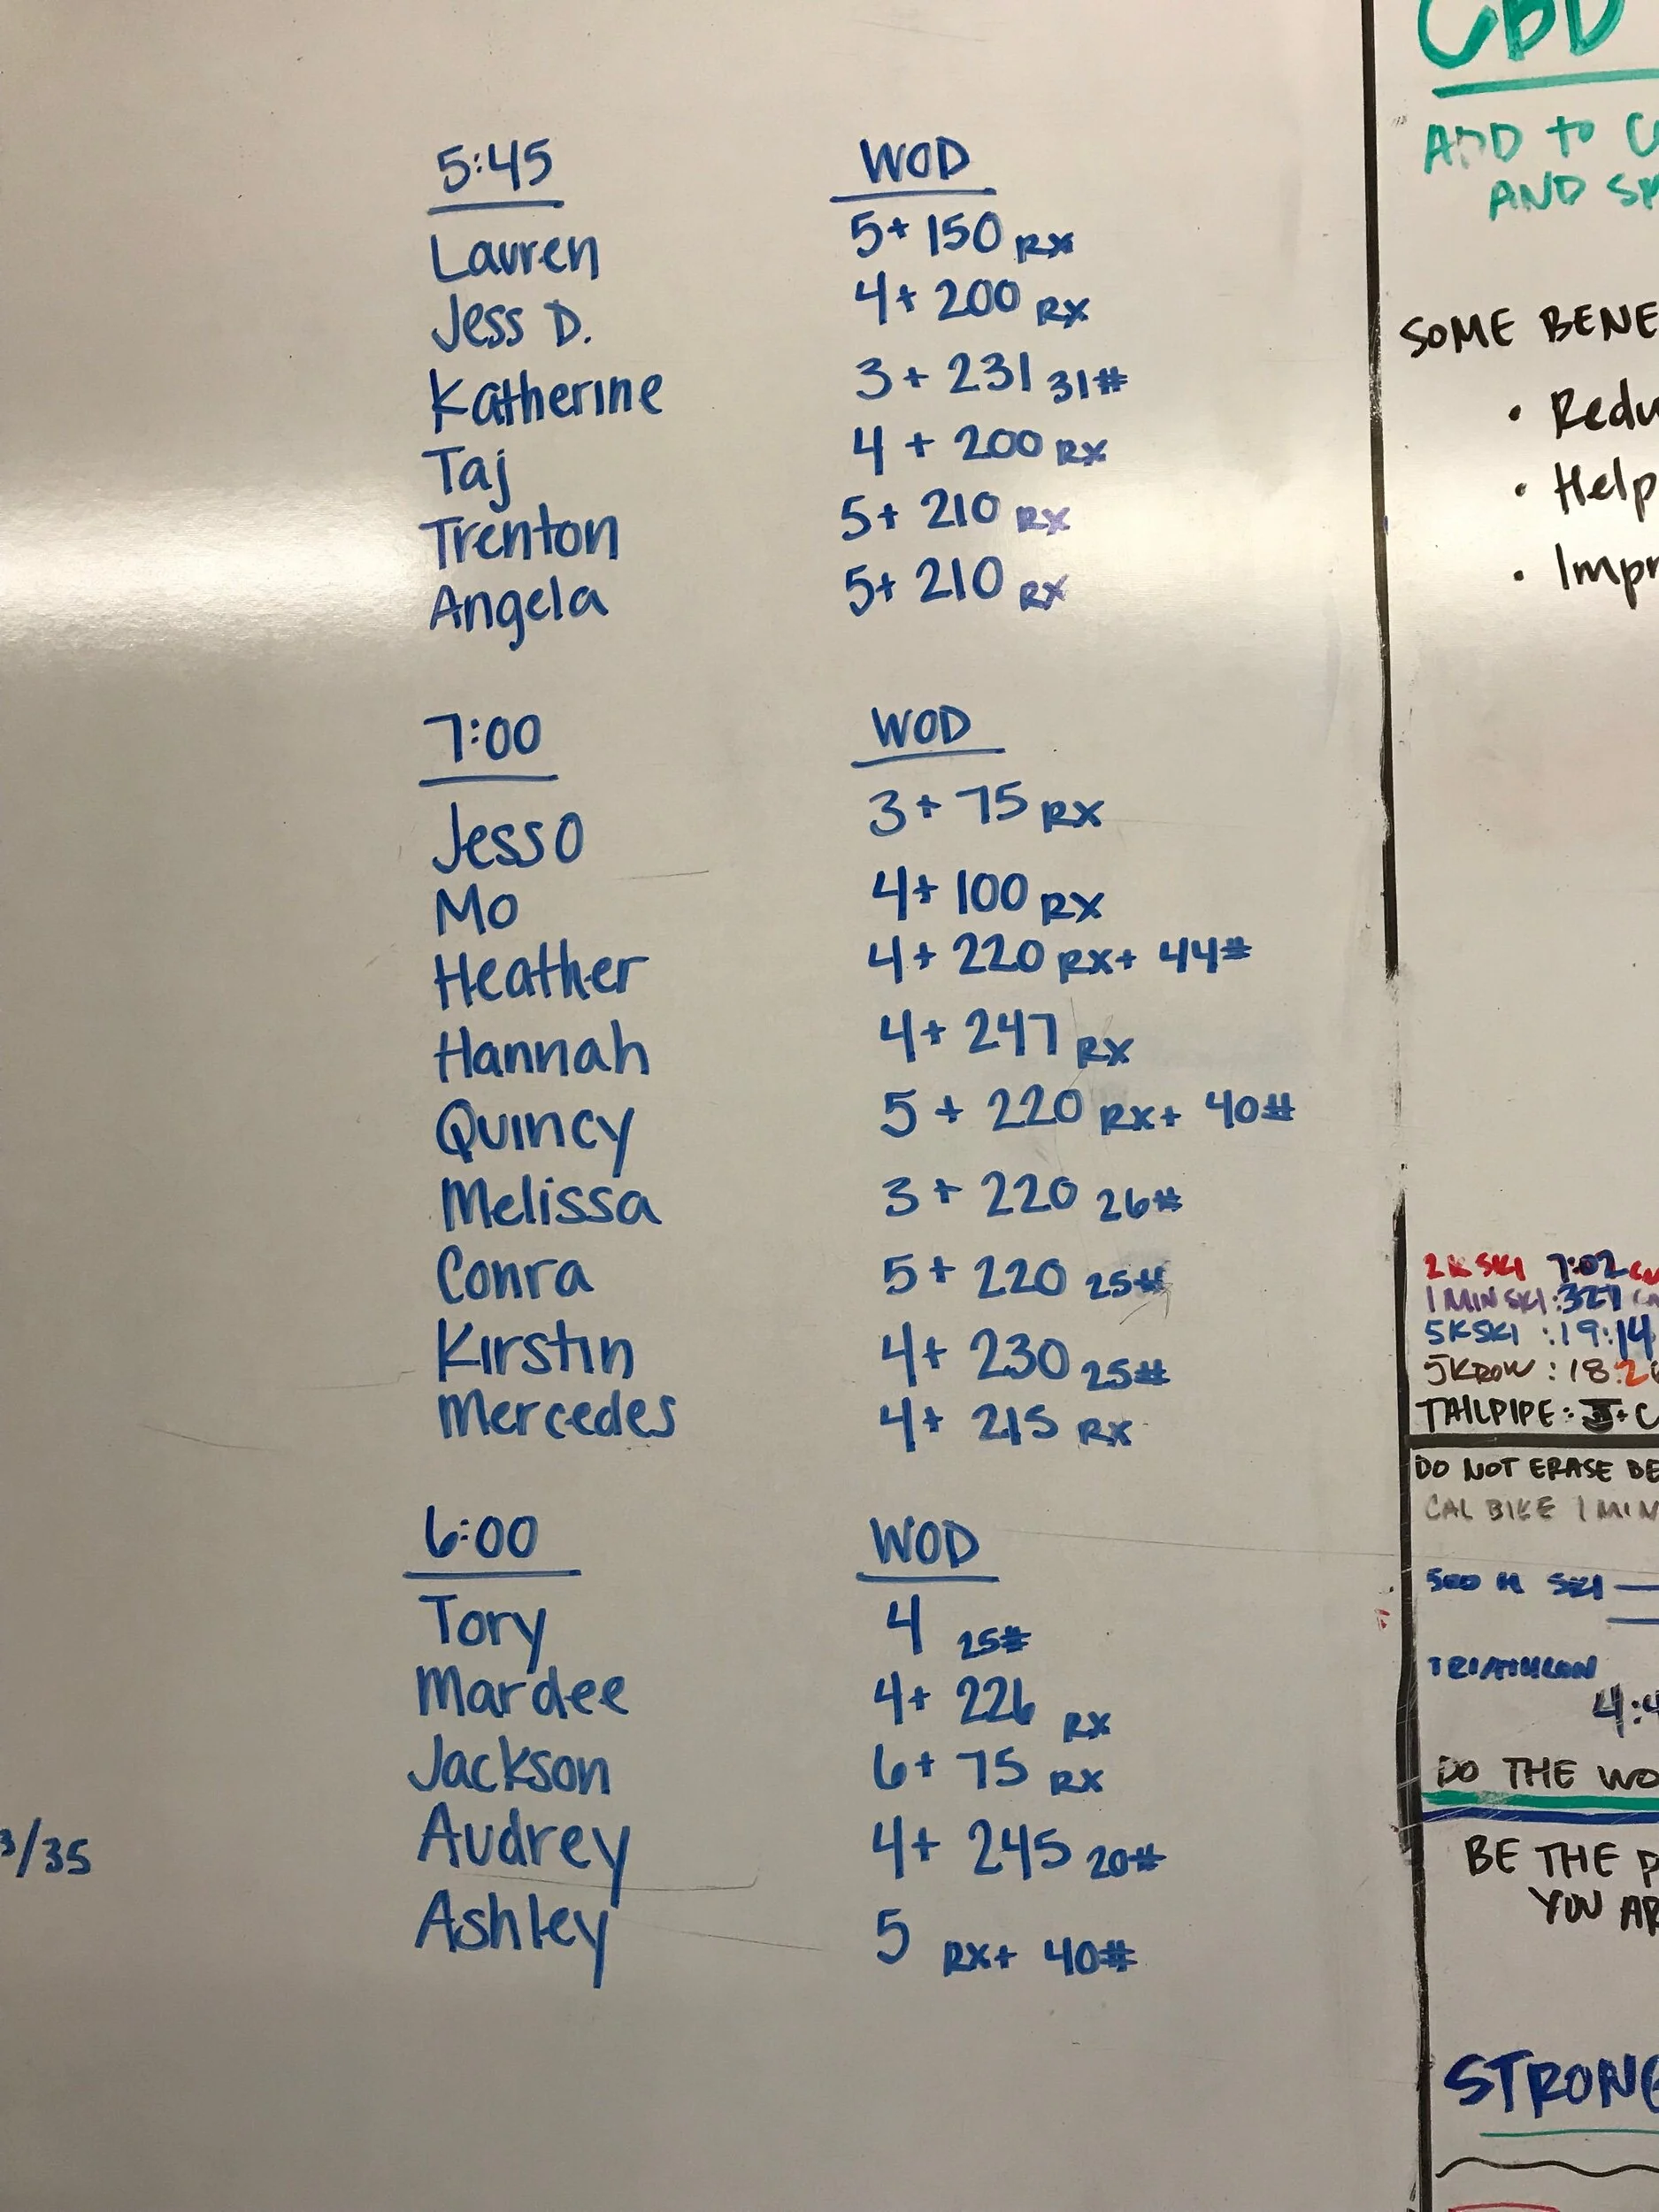 5:45 WOD
Lauren 5+ 150 RX
Jess D. 4+ 200 RX
Katherine 3+ 231 31#
Taj 4 + 200 RX
Trenton 5+ 210 RX
Angela 5+ 210 RX
7:00 WOD
Jess O 3+ 75 RX
Mo 4+ 100 RX
Heather 4+ 220 RX+ 44#
Hannah 4+ 247 RX
Quincy 5 + 220 RX+ 40#
Melissa 3 + 220 26#
Conra 5 + 220 25#
Kirstin 4+ 230 25#
Mercedes 4+ 215 RX
6:00 WOD
Tory 4 25#
Mardee 4+ 226 RX
Jackson 6+ 75 RX
Audrey 4+ 245 20#
Ashley 5 RX+ 40#
3/35
CBD
ADD to
AND
SOME BENE
• Redu
• Help
• Impr
2K SKI 7:02
1 MIN SKI: 327
5K SKI : 19:14
5K ROW : 18:2
TAILPIPE:
DO NOT ERASE BE
CAL BIKE 1 MIN
500 M SKI —
TRIATHLON
4:4
DO THE WO
BE THE P
YOU AR
STRONG